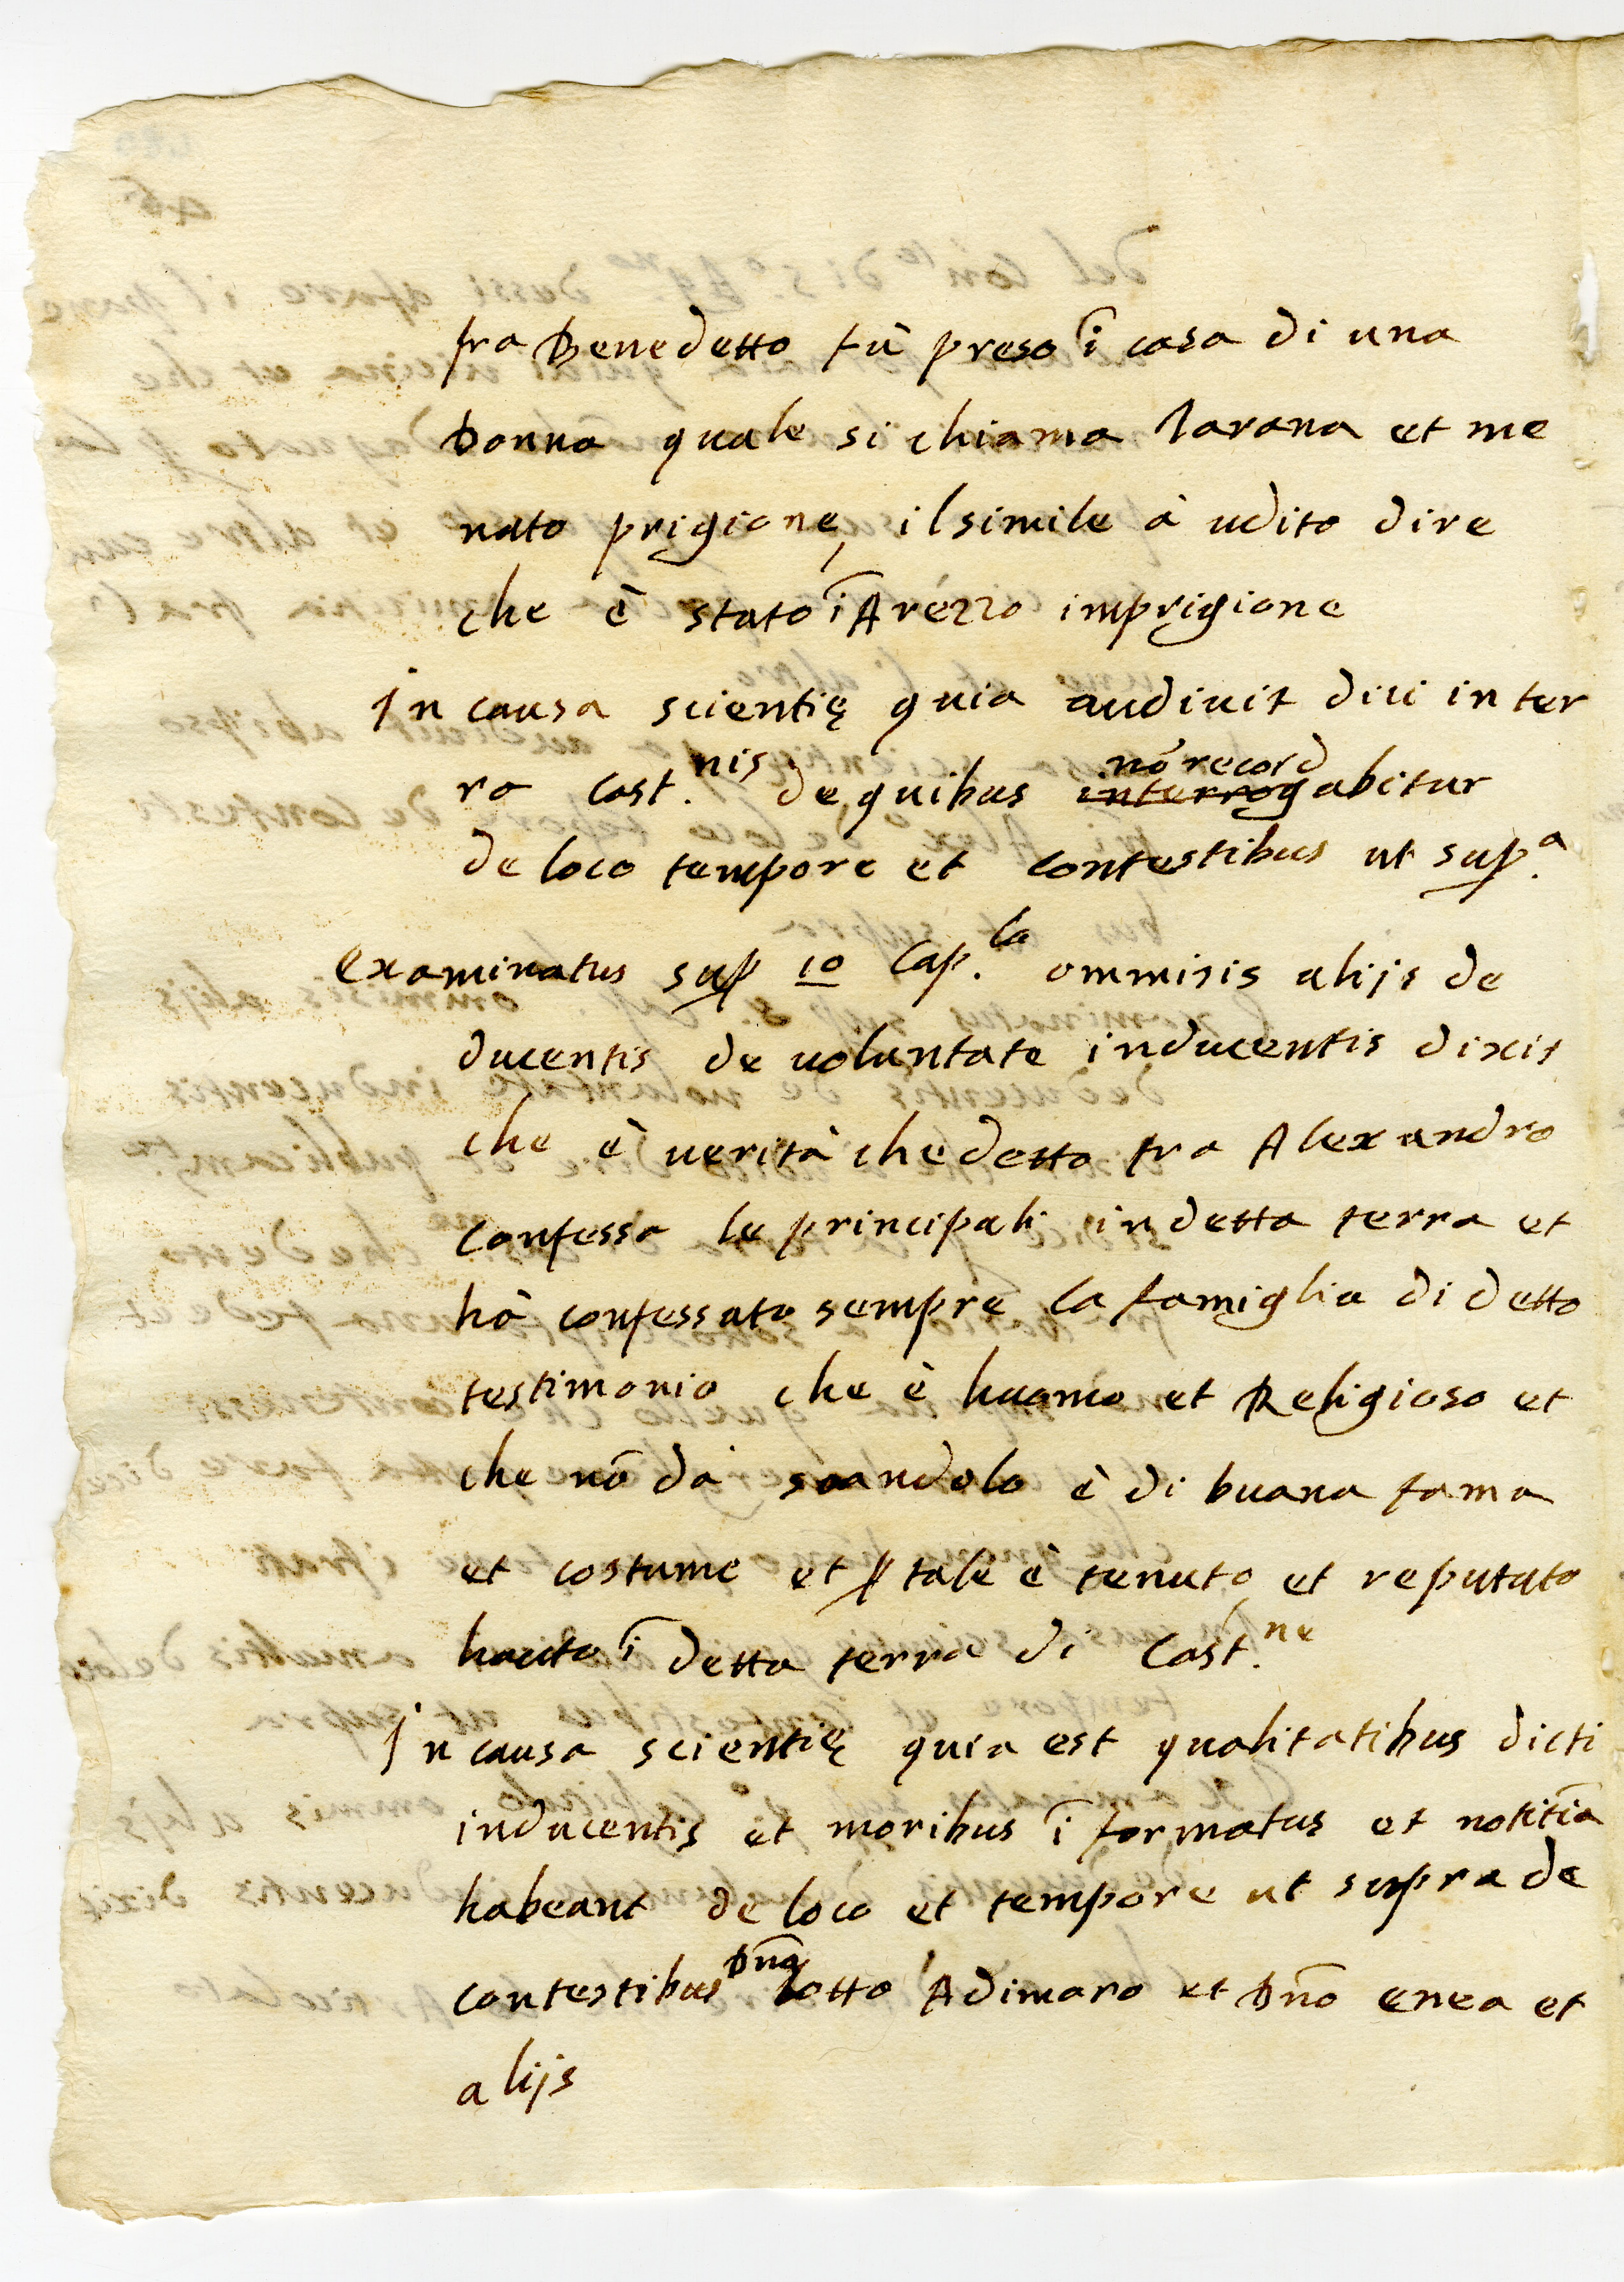 fra Benedetto fù preso ī casa di una
Donna quale si chiama Tarana et me
nato prigione, il simile à udito dire
che è stato ī Arezzo imprigione
In causa scientię quia audivit dici in ter
ra Cast.nis de quibus nō recordabitur
de loco tempore et contestibus ut sup.a
Examinatus sup 10 Cap.la ommisis alijs de
ducentis de uoluntate inducentis dixit
che è verità che detto fra Alexandro
confessa le principali in detta terra et
hà confessato sempre la famiglia di detto
testimonio che è huomo et Religioso et
che nō dà scandolo è di buona fama
et costume et p tale è tenuto et reputato
hauuto ī detta terra di Cast.ne
In causa scientię quia est qualitatibus dicti
inducentis et moribus ī formatus et notitiā
habeant de loco et tempore ut supra de
contestibus Dn̄o Lotto Adimaro et Dn̄o enea et
alijs